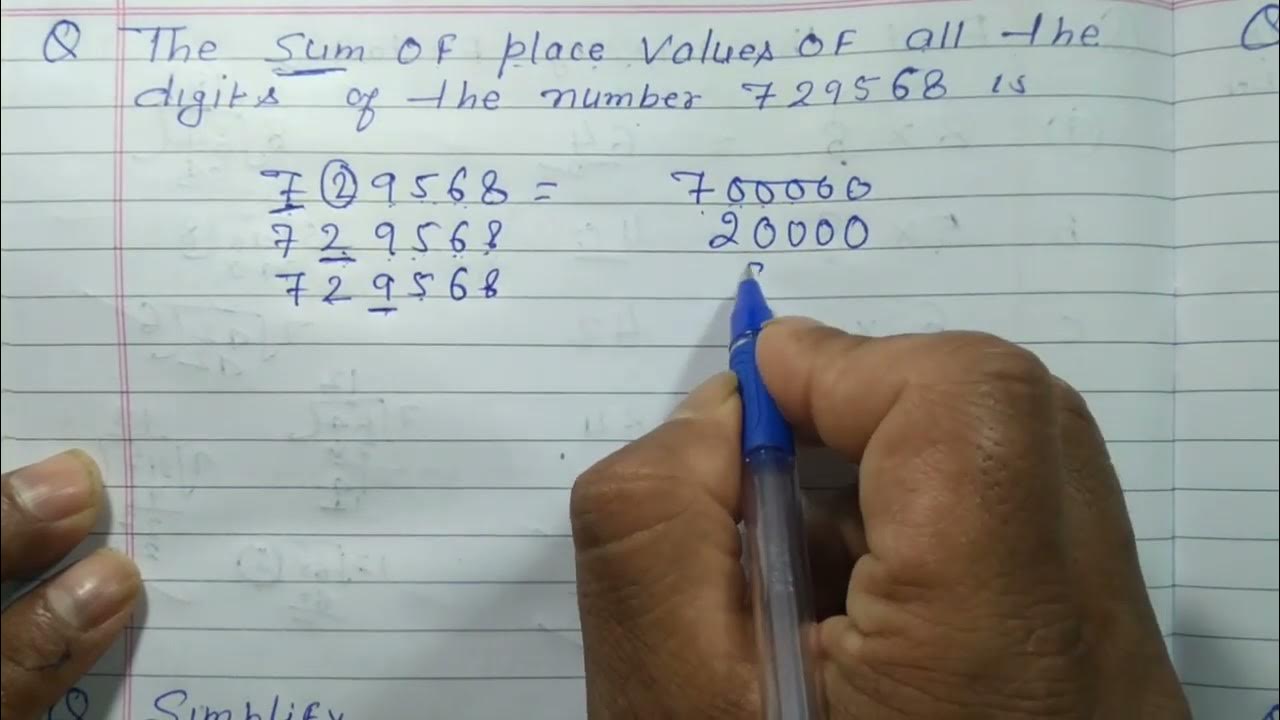 Q The Sum OF place values OF all the
digits of the number 729568 is
729568 = 700000
729568 20000
729568
Q Simplify